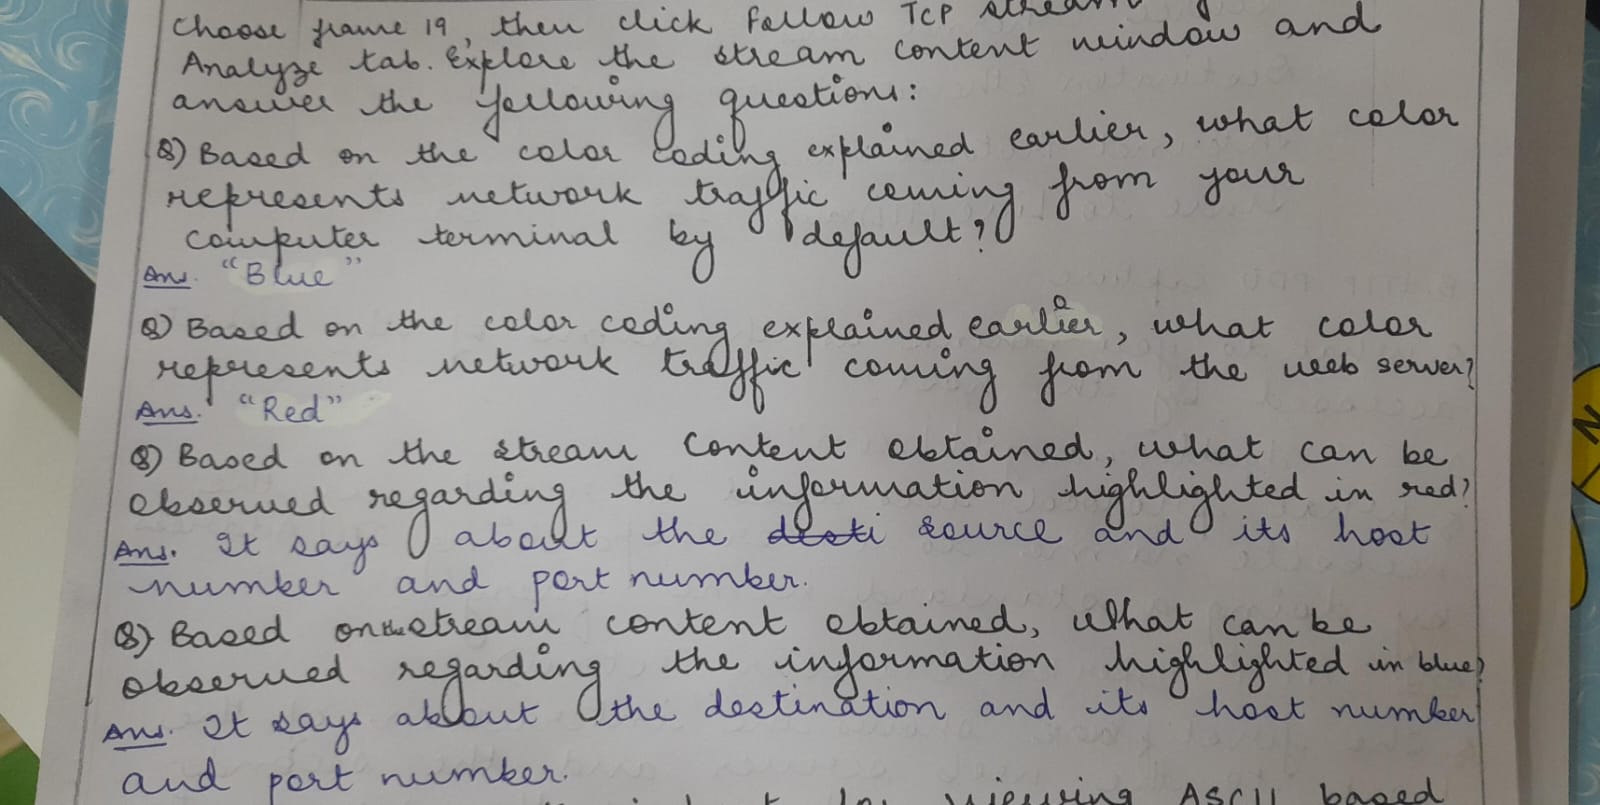 Choose frame 19, then click Follow TCP stream
Analyze tab. Explore the stream content window and
answer the following questions:
Q) Based on the color coding explained earlier, what color
represents network traffic coming from your
computer terminal by default?
Ans. "Blue"
Q) Based on the color coding explained earlier, what color
represents network traffic coming from the web server?
Ans. "Red"
Q) Based on the stream content obtained, what can be
observed regarding the information highlighted in red?
Ans. It says about the desti source and its host
number and port number.
Q) Based on the stream content obtained, what can be
observed regarding the information highlighted in blue?
Ans. It says about the destination and its host number
and port number.
for viewing ASCII based
N